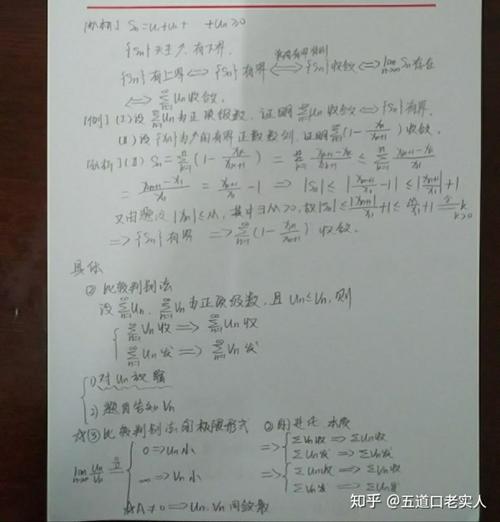 [分析] Sn=u1+u2+ +un≥0
{Sn}天生↗, 有下界.
{Sn}有上界⟺{Sn}有界 ⟺ {Sn}收敛⟺lim n→∞ Sn存在
⟺ ∑n=1∞ Un收敛.
[例] (I) 设∑n=1∞ Un为正项级数, 证明∑n=1∞ Un收敛⟺{Sn}有界.
(II) 设{xn}为↗的有界正数数列, 证明∑n=1∞(1-xn/xn+1)收敛.
[分析] (II) Sn=∑k=1n(1-xk/xk+1)=∑k=1n (xk+1-xk)/xk+1 ≤ ∑k=1n (xk+1-xk)/x1
= (xn+1-x1)/x1 = xn+1/x1 -1 ⟹ |Sn|≤|xn+1/x1 -1|≤|xn+1/x1|+1
又由题设 |xn|≤M, 其中∃M>0, 故|Sn|≤|xn+1/x1|+1≤M/x1+1 k>0
⟹{Sn}有界 ⟹∑n=1∞(1-xn/xn+1)收敛.
具体
② 比较判别法
设∑n=1∞Un, ∑n=1∞Vn为正项级数, 且Un≤Vn, 则
∑n=1∞Vn收⟹∑n=1∞Un收
∑n=1∞Un发⟹∑n=1∞Vn发
1) 对Un放缩
2) 题目告知Vn
☆③比较判别法的极限形式 ②用其优 本质
lim n→∞ Un/Vn
0⟹Un小 ⟹ ∑Vn收⟹∑Un收
∑Un发⟹∑Vn发
∞⟹Vn小 ⟹ ∑Un收⟹∑Vn收
∑Vn发⟹∑Un发
☆A≠0⟹Un, Vn同敛散
知乎 @五道口老实人